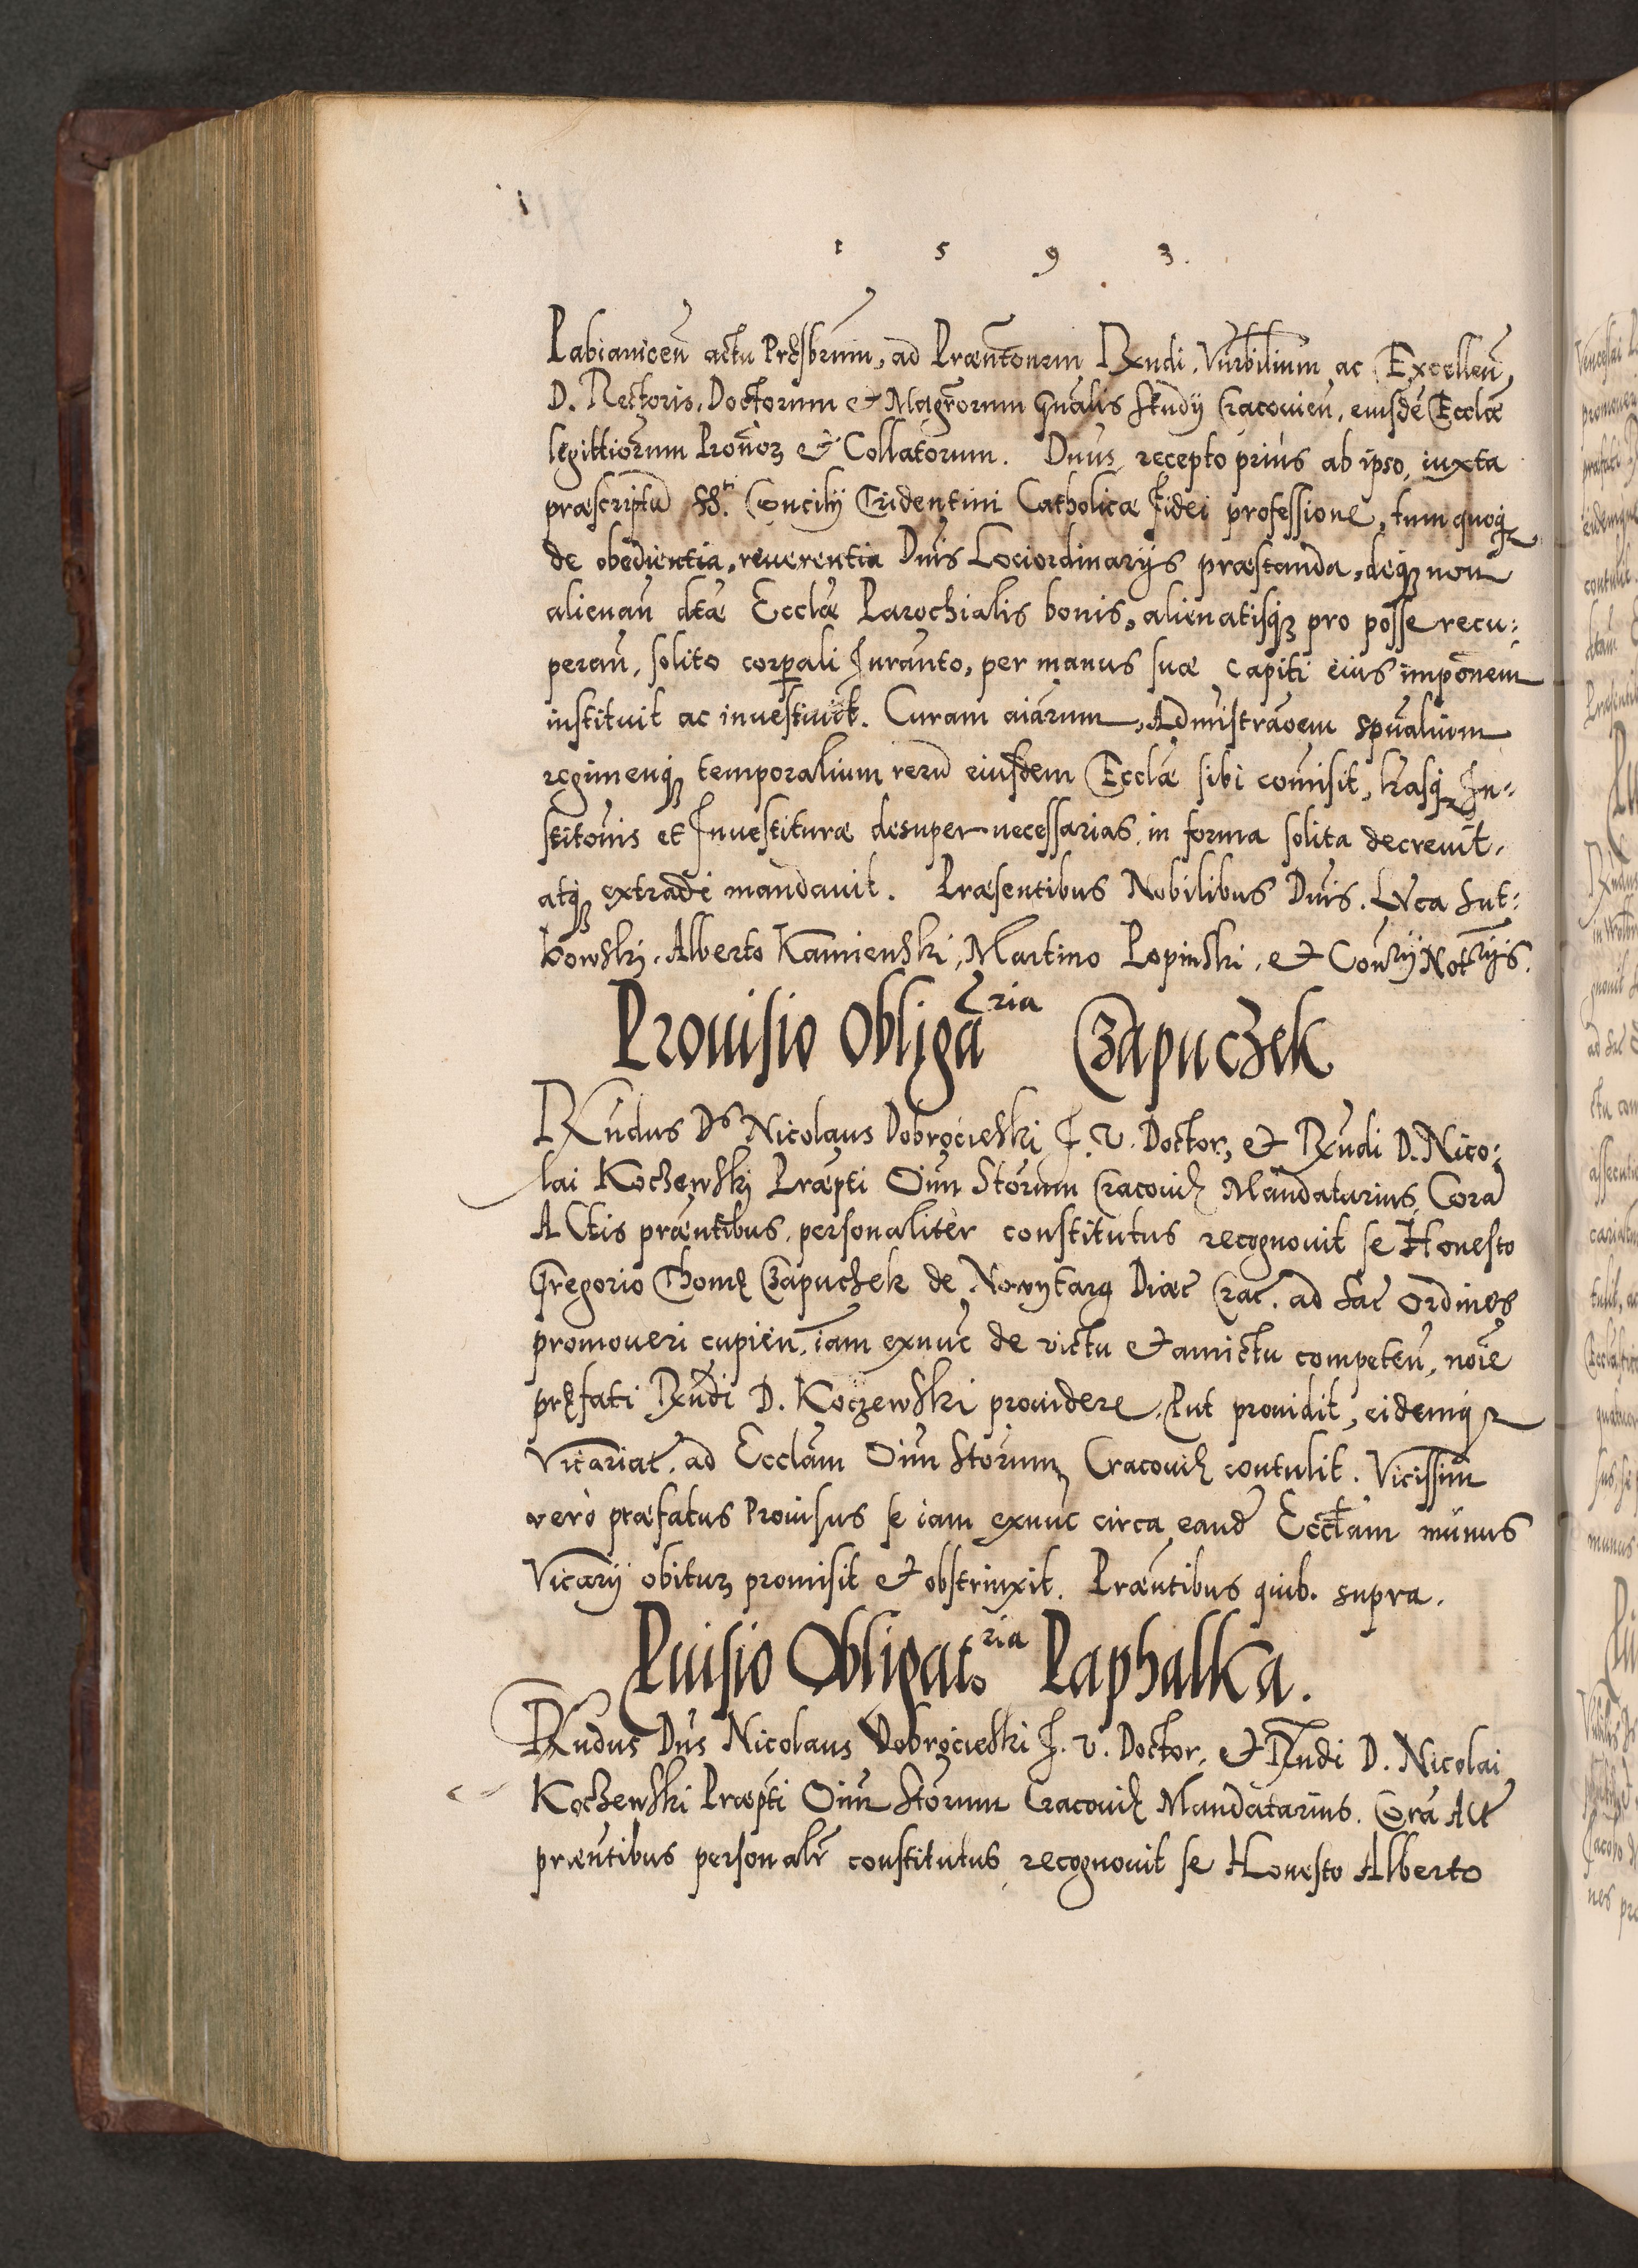 1 5 9 3.
Pabianiceñ actu Presbrum, ad Præntonem Rxndi. Vnrbilium ac Excelleñ,
D. Rectoris, Doctorum et Magrorum Gnalis Studij Cracouieñ, eiusdẽ Ecclæ
legittiorum Pronorꝫ et Collatorum. Dnus, recepto prius ab ipso, iuxta
præscriptũ SS.ti Concilij Tridentini Catholicæ Fidei professione, tum quoqꝫ
de obedientia, reuerentia Dnis Lociordinarijs præstanda, deqꝫ non
alienañ dctæ Ecclæ Parochialis bonis, alienatisqꝫ pro posse recu:
perañ, solito corporali Iuranto, per manus suæ capiti eius imponeñ
instituit ac inuestiuit. Curam aiarum, Admistraoem spualium
regimenqꝫ temporalium rerũ eiusdem Ecclæ sibi comisit, lrasqꝫ In-
stitonis et Inuestituræ desuper necessarias, in forma solita decreuit,
atqꝫ extradi mandauit. Præsentibus Nobilibus Dnis. Luca Sut:
kowskj, Alberto Kamienski, Martino Lopinski, et Conrij Notrijs.
Prouisio Obligatria Czapuczek
Rxndus Ds Nicolaus Dobrocieski J. V. Doctor, et Rxndi D. Nico:
lai Koczewskj Præpti Oim Storum Cracouię Mandatarius, Corã
Actis præntibus, personaliter constitutus recognouit se Honesto
Gregorio Thomę Czapuczek de Nowytarg Diæc Crac. ad Sac Ordines
promoueri cupieñ, iam exnuc de victu et amictu competeñ, noie
pręfati Rxndi D. Koczewski prouidere, Put prouidit, eidemqꝫ
Vicariat. ad Ecclam Oim Storum Cracouię contulit. Vicissim
vero præfatus Prouisus se iam exnuc circa eandẽ Ecclam munus
Vicarij obiturꝫ promisit et obstrinxit. Præntibus quib. supra.
Puisio Obligatoria Paphalka.
Rxndus Dns Nicolaus Dobrocieski J. V. Doctor, et Rxndi D. Nicolai
Koczewski Præpti Oim Storum Cracouię Mandatarius. Corã Act
præntibus personalr constitutus recognouit se Honesto Alberto